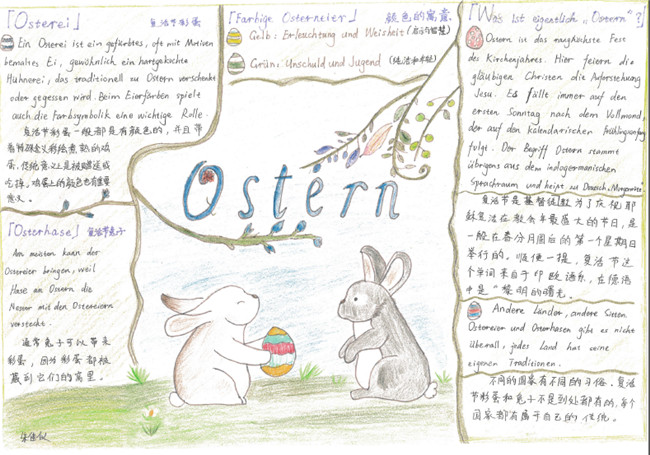 「Osterei」 复活节彩蛋
Ein Osterei ist ein gefärbtes, oft mit Motiven
bemaltes Ei, gewöhnlich ein hartgekochte
Hühnerei, das traditionell zu Ostern verschenkt
oder gegessen wird. Beim Eierfärben spielt
auch die Farbsymbolik eine wichtige Rolle.
复活节彩蛋一般都是有颜色的,并且带
着特殊意义彩绘煮熟的鸡
蛋,传统意义上是被赠送或
吃掉,鸡蛋上的颜色也有重要
意义。
「Osterhase」 复活节兔子
Am meisten kann der
Ostereier bringen, weil
Hase an Ostern die
Nester mit den Ostereiern
versteckt.
通常兔子可以带来
彩蛋,因为彩蛋都被
藏到它们的窝里。
「Farbige Osterneier」 颜色的寓意
Gelb: Erleuchtung und Weisheit (启示与智慧)
Grün: Unschuld und Jugend (纯洁和年轻)
Ostern
「Was ist eigentlich „Ostern"?」
Ostern ist das wichtigste Fest
des Kirchenjahres. Hier feiern die
gläubigen Christen die Auferstehung
Jesu. Es fällt immer auf den
ersten Sonntag nach dem Vollmond,
der auf den kalendarischen Frühlingsanfang
folgt. Der Begriff Ostern stammt
übrigens aus dem indogermanischen
Sprachraum und heißt zu Deutsch „Morgenröte"
复活节是基督徒为了庆祝耶
稣复活在教会年最盛大的节日,是
一般在春分月圆后的第一个星期日
举行的。顺便一提,复活节这
个单词来自于印欧语系,在德语
中是“黎明的曙光。
Andere Länder, andere Sitten
Ostereier und Osterhasen gibt es nicht
überall, jedes Land hat seine
eigenen Traditionen.
不同的国家有不同的习俗。复活
节彩蛋和兔子不是到处都有的,每个
国家都有属于自己的传统。